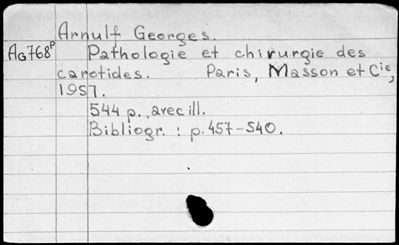 Arnulf Georges.
Ao768ᵖ Pathologie et chirurgie des
carotides. Paris, Masson et Cie,
1957.
544 p., avec ill.
Bibliogr. : p. 457-540.